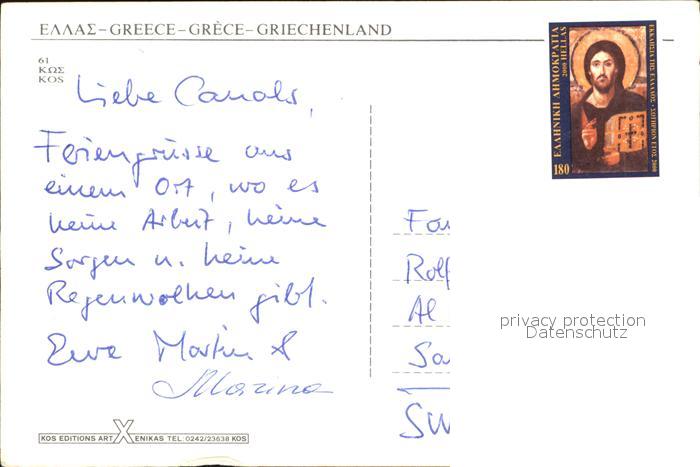 ΕΛΛΑΣ–GREECE–GRÈCE–GRIECHENLAND
61
ΚΩΣ
KOS
Liebe Canals,
Feriengrüsse aus
einem Ort, wo es
keine Arbeit, keine
Sorgen u. keine
Regenwolken gibt.
Eure Martin &
Marina
ΕΛΛΗΝΙΚΗ ΔΗΜΟΚΡΑΤΙΑ
2000 HELLAS
ΕΚΚΛΗΣΙΑ ΤΗΣ ΕΛΛΑΔΟΣ - ΣΩΤΗΡΙΟΝ ΕΤΟΣ 2000
180
Rolf
Al
privacy protection
Datenschutz
KOS EDITIONS ART XENIKAS TEL: 0242/23638 KOS